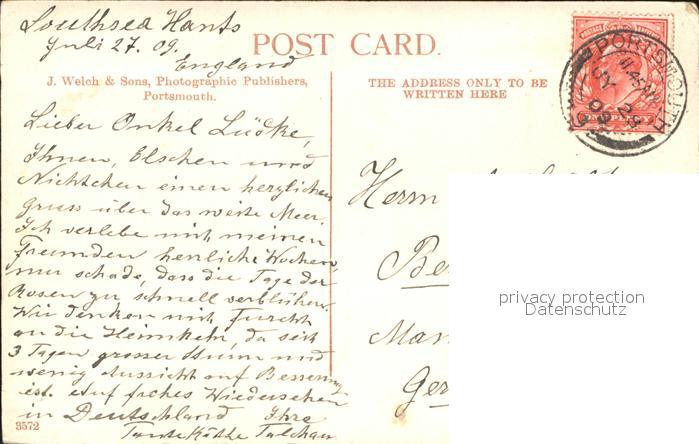 Southsea Hants
Juli 27. 09.
England
POST CARD.
J. Welch & Sons, Photographic Publishers,
Portsmouth.
THE ADDRESS ONLY TO BE
WRITTEN HERE
PORTSMOUTH
JY
09
POSTAGE
ONE PENNY
Lieber Onkel Lüdke,
Ihnen, Elschen und
Nichtchen einen herzlichen
Gruss über das weite Meer.
Ich verlebe mit meinen
Freunden herrliche Wochen,
nur schade, dass die Tage der
Rosen zu schnell verblühen.
Wir denken mit Furcht
an die Heimkehr, da seit
3 Tagen grosser Sturm und
wenig Aussicht auf Besserung
ist. Auf frohes Wiedersehen
in Deutschland Ihre
Tante Käthe
3572
Herrn
Be
Man
Ger
privacy protection
Datenschutz